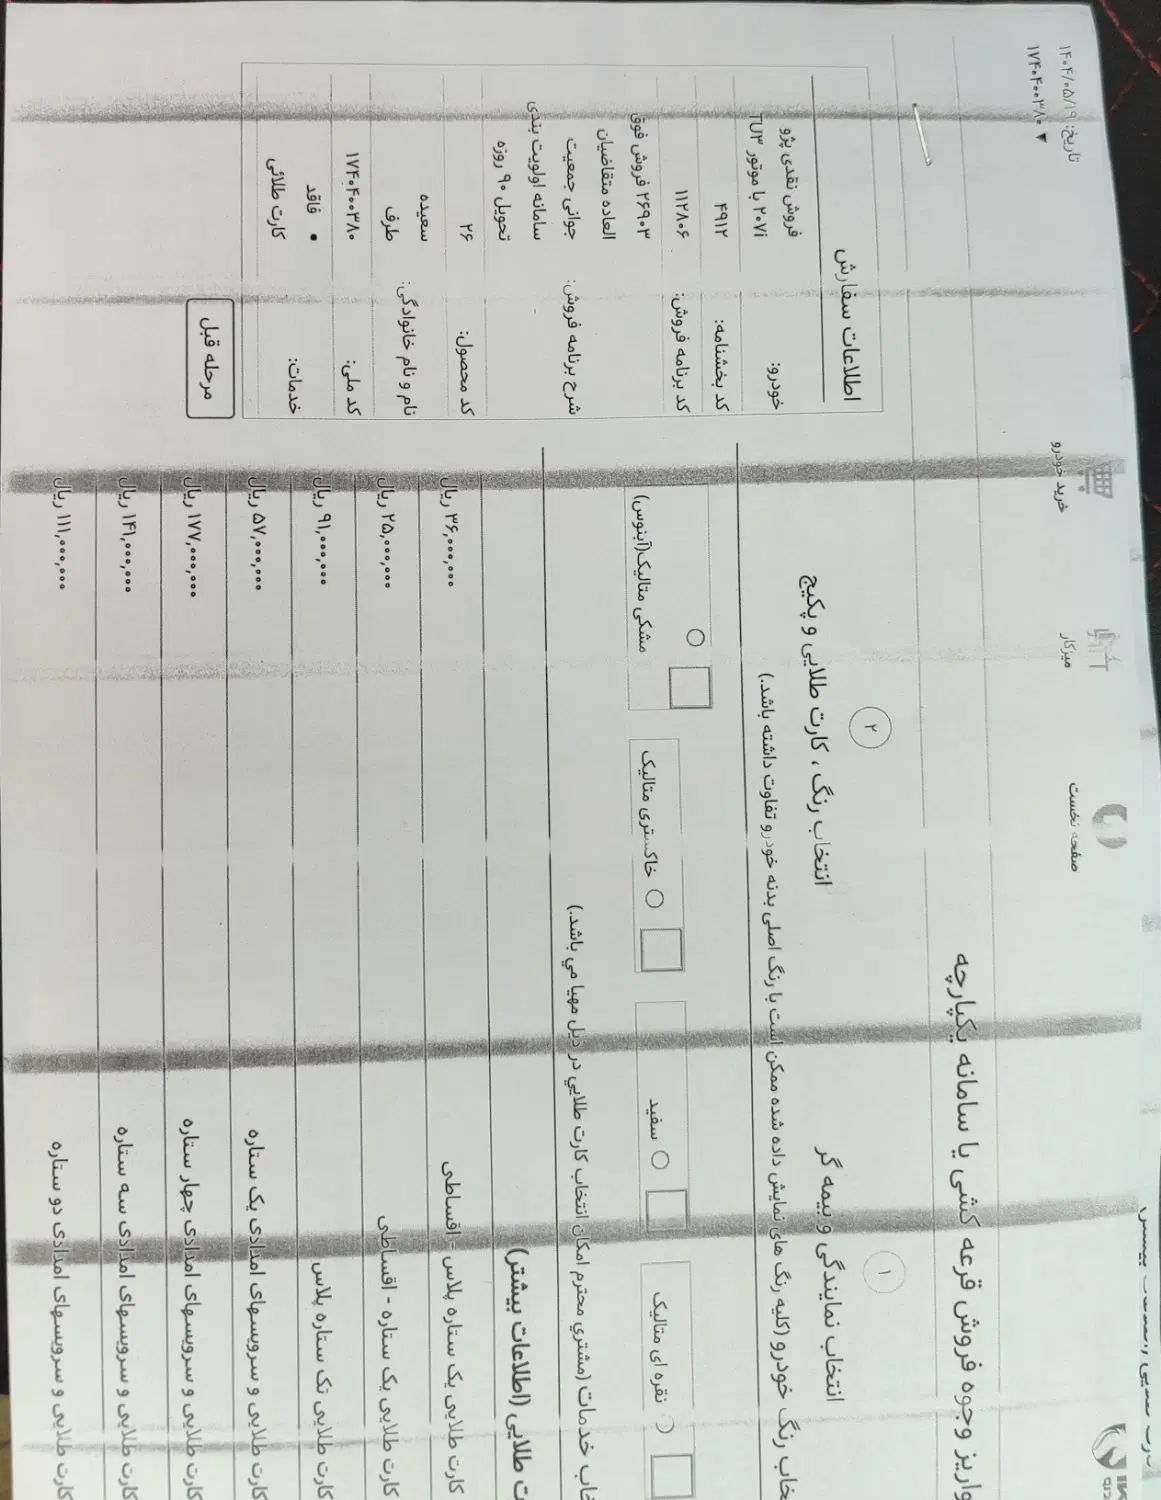 تاریخ: ۱۴۰۴/۰۵/۱۹
۱۷۴۰۴۰۰۳۸۰ ▼
صفحه نخست
میزکار
خرید خودرو
واریز وجوه فروش قرعه کشی یا سامانه یکپارچه
۱
انتخاب نمایندگی و بیمه گر
۲
انتخاب رنگ ، کارت طلایی و پکیج
رنگ خودرو (کلیه رنگ های نمایش داده شده ممکن است با رنگ اصلی بدنه خودرو تفاوت داشته باشد.)
نقره ای متالیک
سفید
خاکستری متالیک
مشکی متالیک(آبنوس)
خدمات (مشتري محترم امکان انتخاب کارت طلايي در ذیل مهیا مي باشد.)
طلایی (اطلاعات بیشتر)
کارت طلایی یک ستاره پلاس - اقساطی ۳۶,۰۰۰,۰۰۰ ریال
کارت طلایی یک ستاره - اقساطی ۲۵,۰۰۰,۰۰۰ ریال
کارت طلایی تک ستاره پلاس ۹۱,۰۰۰,۰۰۰ ریال
کارت طلایی و سرویسهای امدادی یک ستاره ۵۷,۰۰۰,۰۰۰ ریال
کارت طلایی و سرویسهای امدادی چهار ستاره ۱۷۷,۰۰۰,۰۰۰ ریال
کارت طلایی و سرویسهای امدادی سه ستاره ۱۴۱,۰۰۰,۰۰۰ ریال
کارت طلایی و سرویسهای امدادی دو ستاره ۱۱۱,۰۰۰,۰۰۰ ریال
اطلاعات سفارش
خودرو: فروش نقدی پژو
۲۰۷i با موتور TU۳
کد بخشنامه: ۴۹۱۲
کد برنامه فروش: ۱۱۲۸۰۶
شرح برنامه فروش: ۲۶۹۰۳ فروش فوق
العاده متقاضیان
جوانی جمعیت
سامانه اولویت بندی
تحویل ۹۰ روزه
کد محصول: ۲۶
نام و نام خانوادگی: سعیده
طرف
کد ملی: ۱۷۴۰۴۰۰۳۸۰
خدمات: • فاقد
کارت طلائی
مرحله قبل